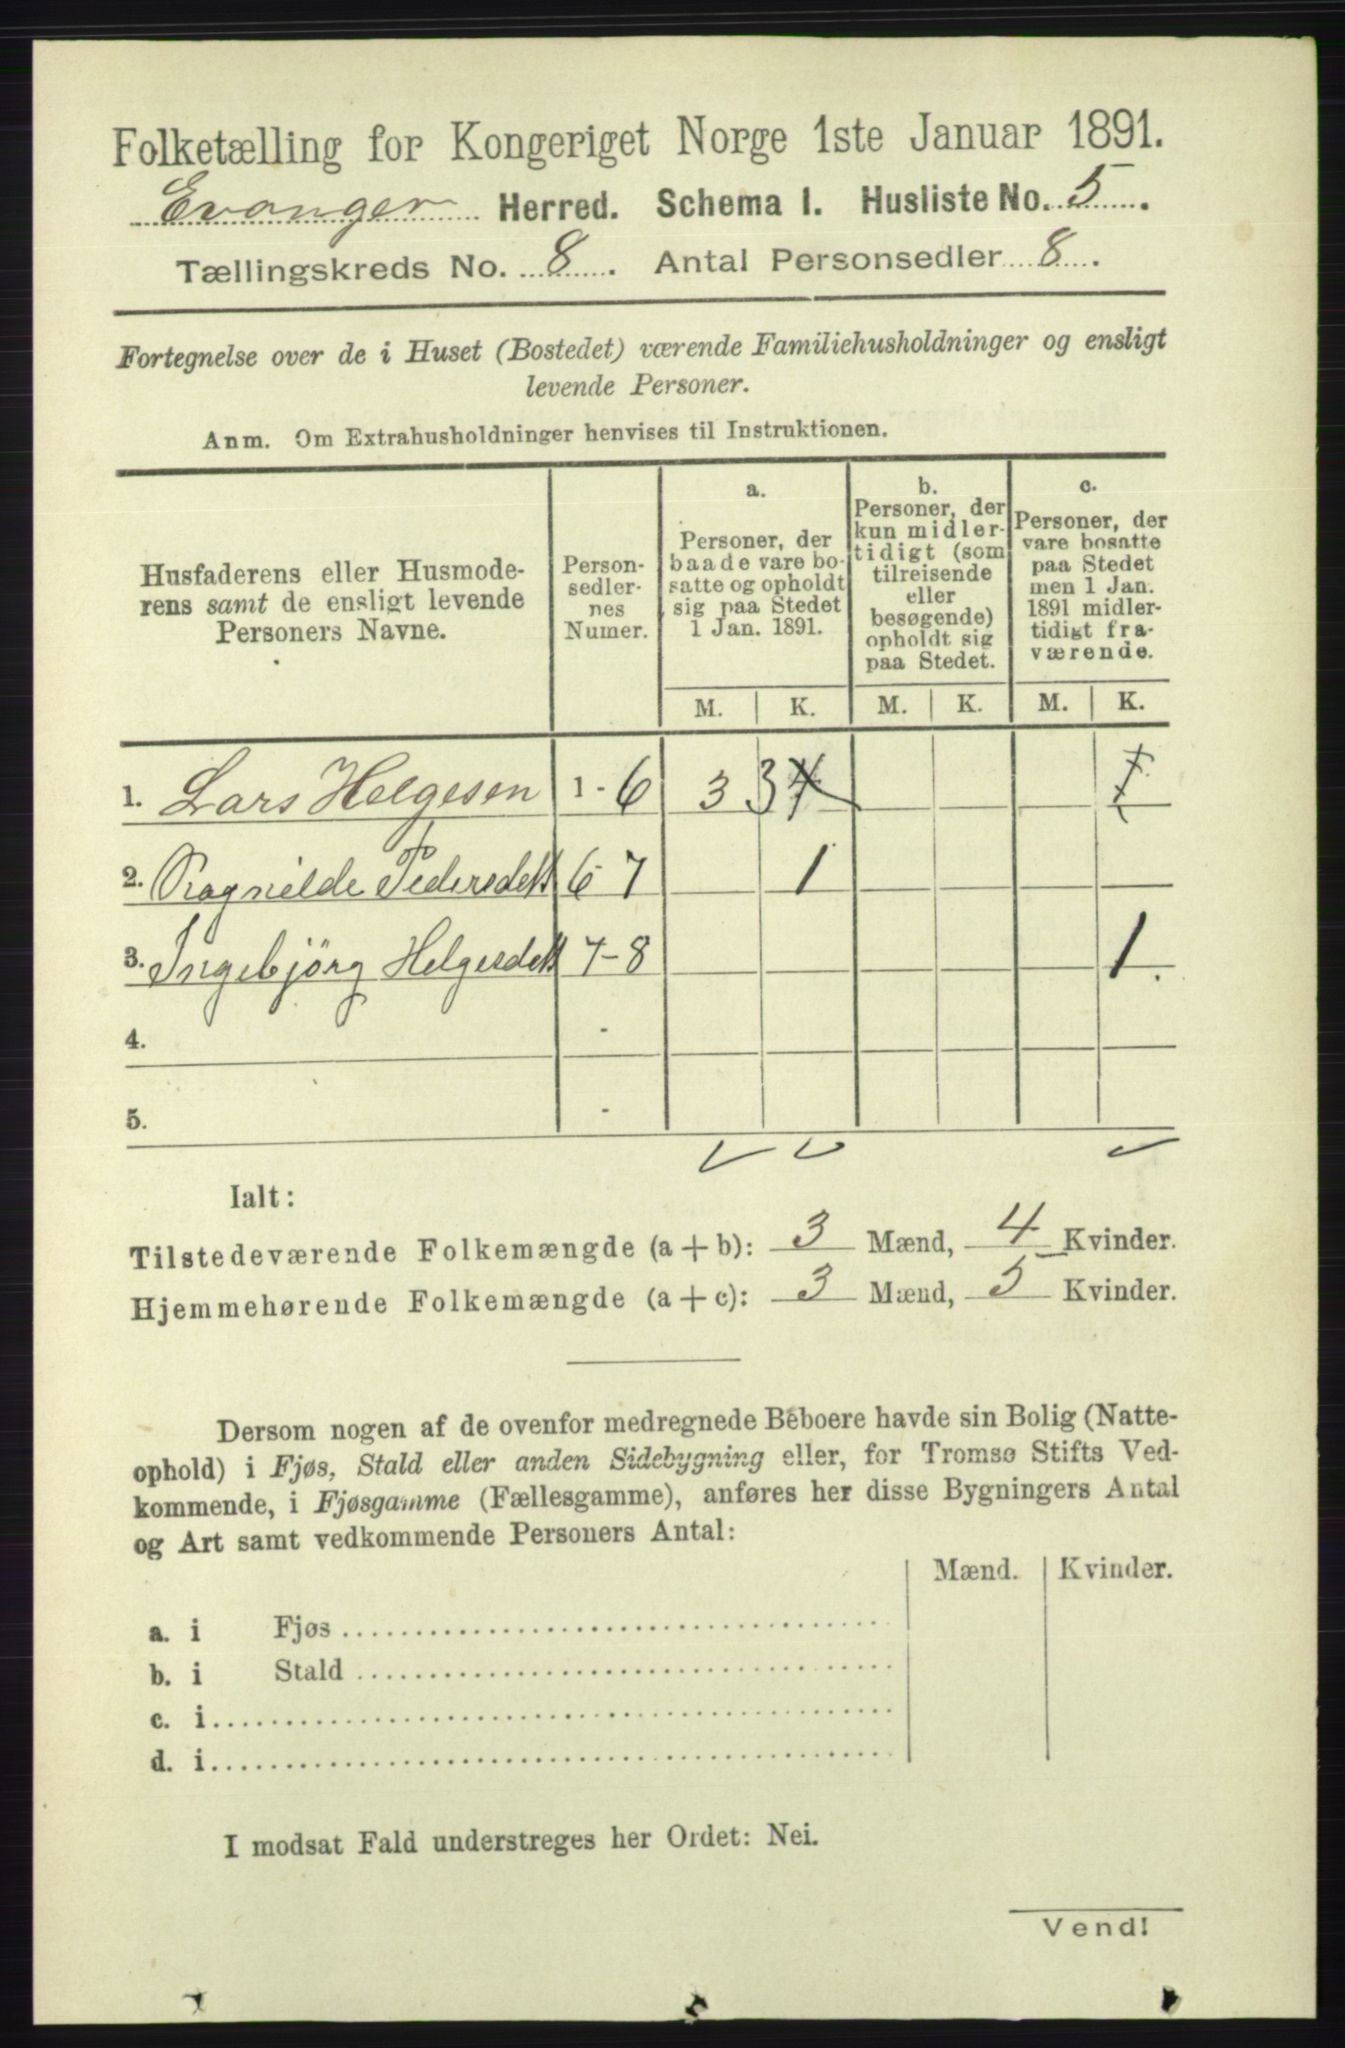 Folketælling for Kongeriget Norge 1ste Januar 1891.
Evanger Herred. Schema I. Husliste No. 5.
Tællingskreds No. 8. Antal Personsedler 8.
Fortegnelse over de i Huset (Bostedet) værende Familiehusholdninger og ensligt
levende Personer.
Anm. Om Extrahusholdninger henvises til Instruktionen.
Husfaderens eller Husmode-
rens samt de ensligt levende
Personers Navne.
Person-
sedler-
nes
Numer.
a.
Personer, der
baade vare bo-
satte og opholdt
sig paa Stedet
1 Jan. 1891.
b.
Personer, der
kun midler-
tidigt (som
tilreisende
eller
besøgende)
opholdt sig
paa Stedet.
c.
Personer, der
vare bosatte
paa Stedet
men 1 Jan.
1891 midler-
tidigt fra-
værende.
M. K. M. K. M. K.
1. Lars Helgesen 1-6 3 3 4 1
2. Ragnilde Pedersdatt 6-7 1
3. Ingebjörg Helgesdatt 7-8 1.
4. -
5. -
Ialt:
Tilstedeværende Folkemængde (a + b): 3 Mænd, 4 Kvinder.
Hjemmehørende Folkemængde (a + c): 3 Mænd, 5 Kvinder.
Dersom nogen af de ovenfor medregnede Beboere havde sin Bolig (Natte-
ophold) i Fjøs, Stald eller anden Sidebygning eller, for Tromsø Stifts Ved-
kommende, i Fjøsgamme (Fællesgamme), anføres her disse Bygningers Antal
og Art samt vedkommende Personers Antal:
Mænd. Kvinder.
a. i Fjøs
b. i Stald
c. i
d. i
I modsat Fald understreges her Ordet: Nei.
Vend!